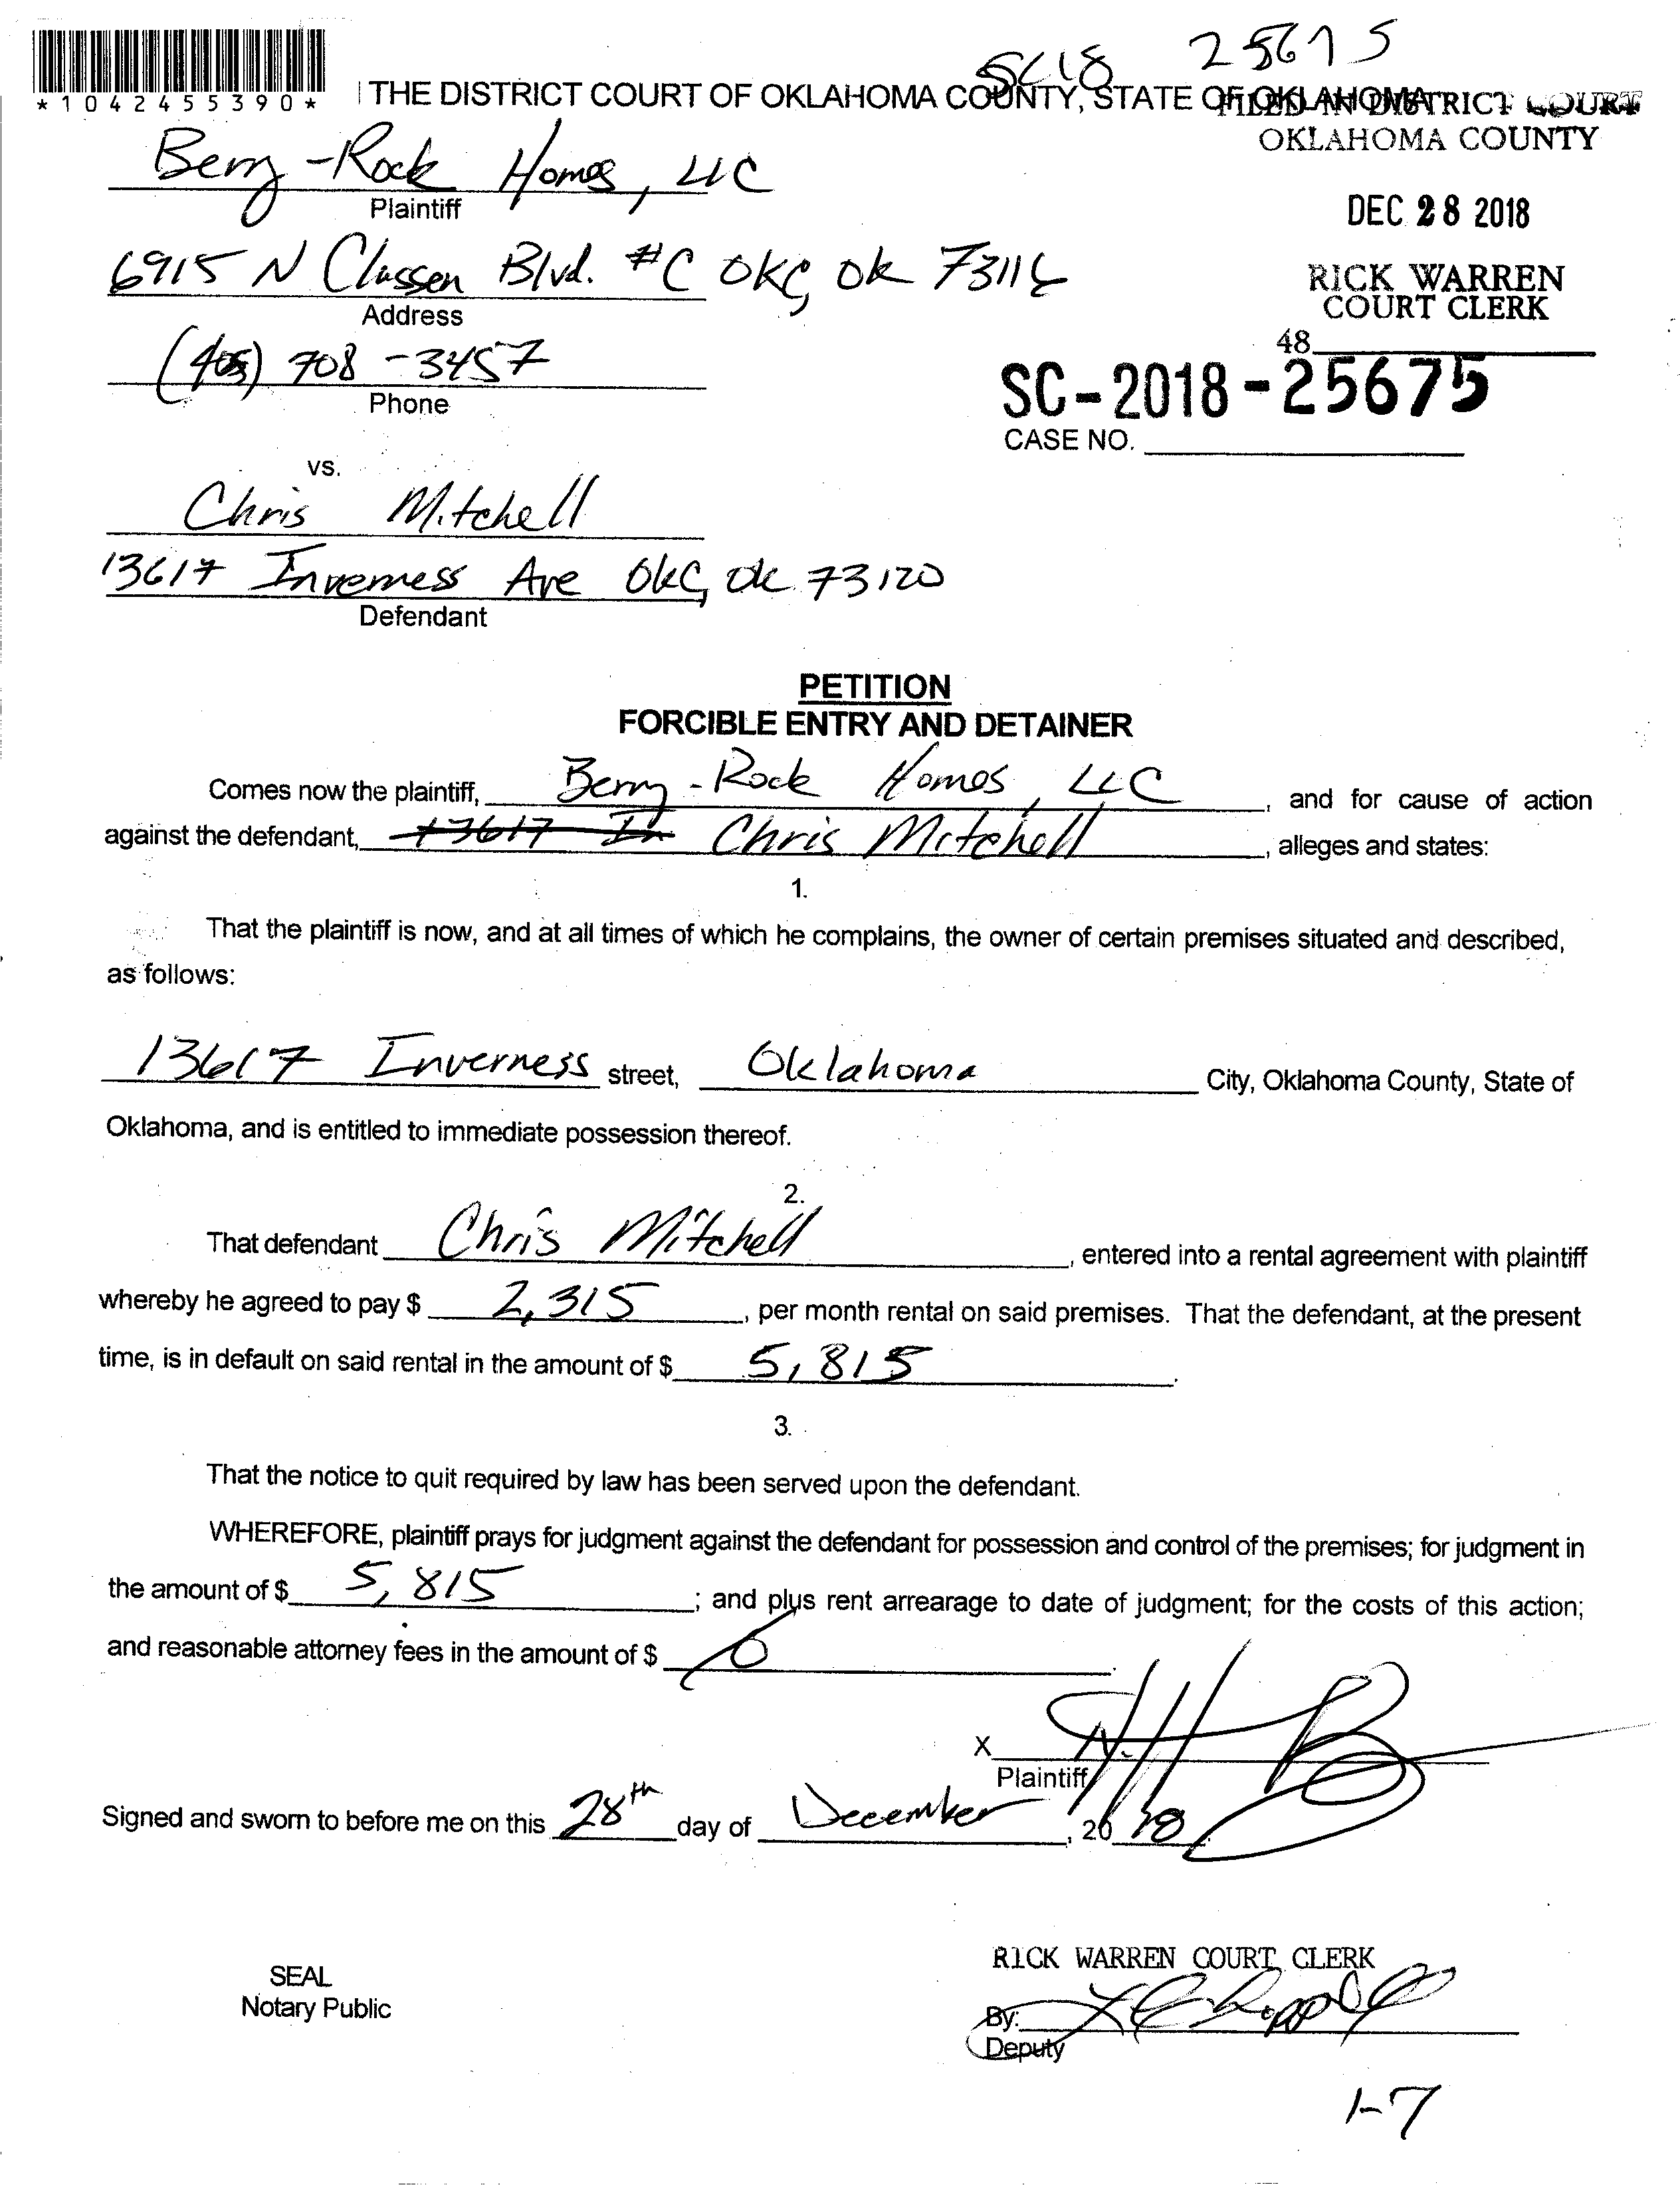 SC18 25675
*1042455390*
THE DISTRICT COURT OF OKLAHOMA COUNTY, STATE OF OKLAHOMA
FILED IN DISTRICT COURT
OKLAHOMA COUNTY
Berry-Rock Homes, LLC
Plaintiff
DEC 28 2018
6915 N Classen Blvd. #C OKC, OK 73116
Address
RICK WARREN
COURT CLERK
(405) 708-3457
Phone
48
SC-2018-25675
CASE NO.
vs.
Chris Mitchell
13617 Inverness Ave OKC, OK 73120
Defendant
PETITION
FORCIBLE ENTRY AND DETAINER
Comes now the plaintiff, Berry-Rock Homes, LLC, and for cause of action
against the defendant, 13617 In Chris Mitchell, alleges and states:
1.
That the plaintiff is now, and at all times of which he complains, the owner of certain premises situated and described,
as follows:
13617 Inverness street, Oklahoma City, Oklahoma County, State of
Oklahoma, and is entitled to immediate possession thereof.
2.
That defendant Chris Mitchell, entered into a rental agreement with plaintiff
whereby he agreed to pay $ 2,315, per month rental on said premises. That the defendant, at the present
time, is in default on said rental in the amount of $ 5,815.
3.
That the notice to quit required by law has been served upon the defendant.
WHEREFORE, plaintiff prays for judgment against the defendant for possession and control of the premises; for judgment in
the amount of $ 5,815; and plus rent arrearage to date of judgment; for the costs of this action;
and reasonable attorney fees in the amount of $ 0.
X
Plaintiff
Signed and sworn to before me on this 28th day of December, 2018.
RICK WARREN COURT CLERK
SEAL
Notary Public
By:
Deputy
1-7